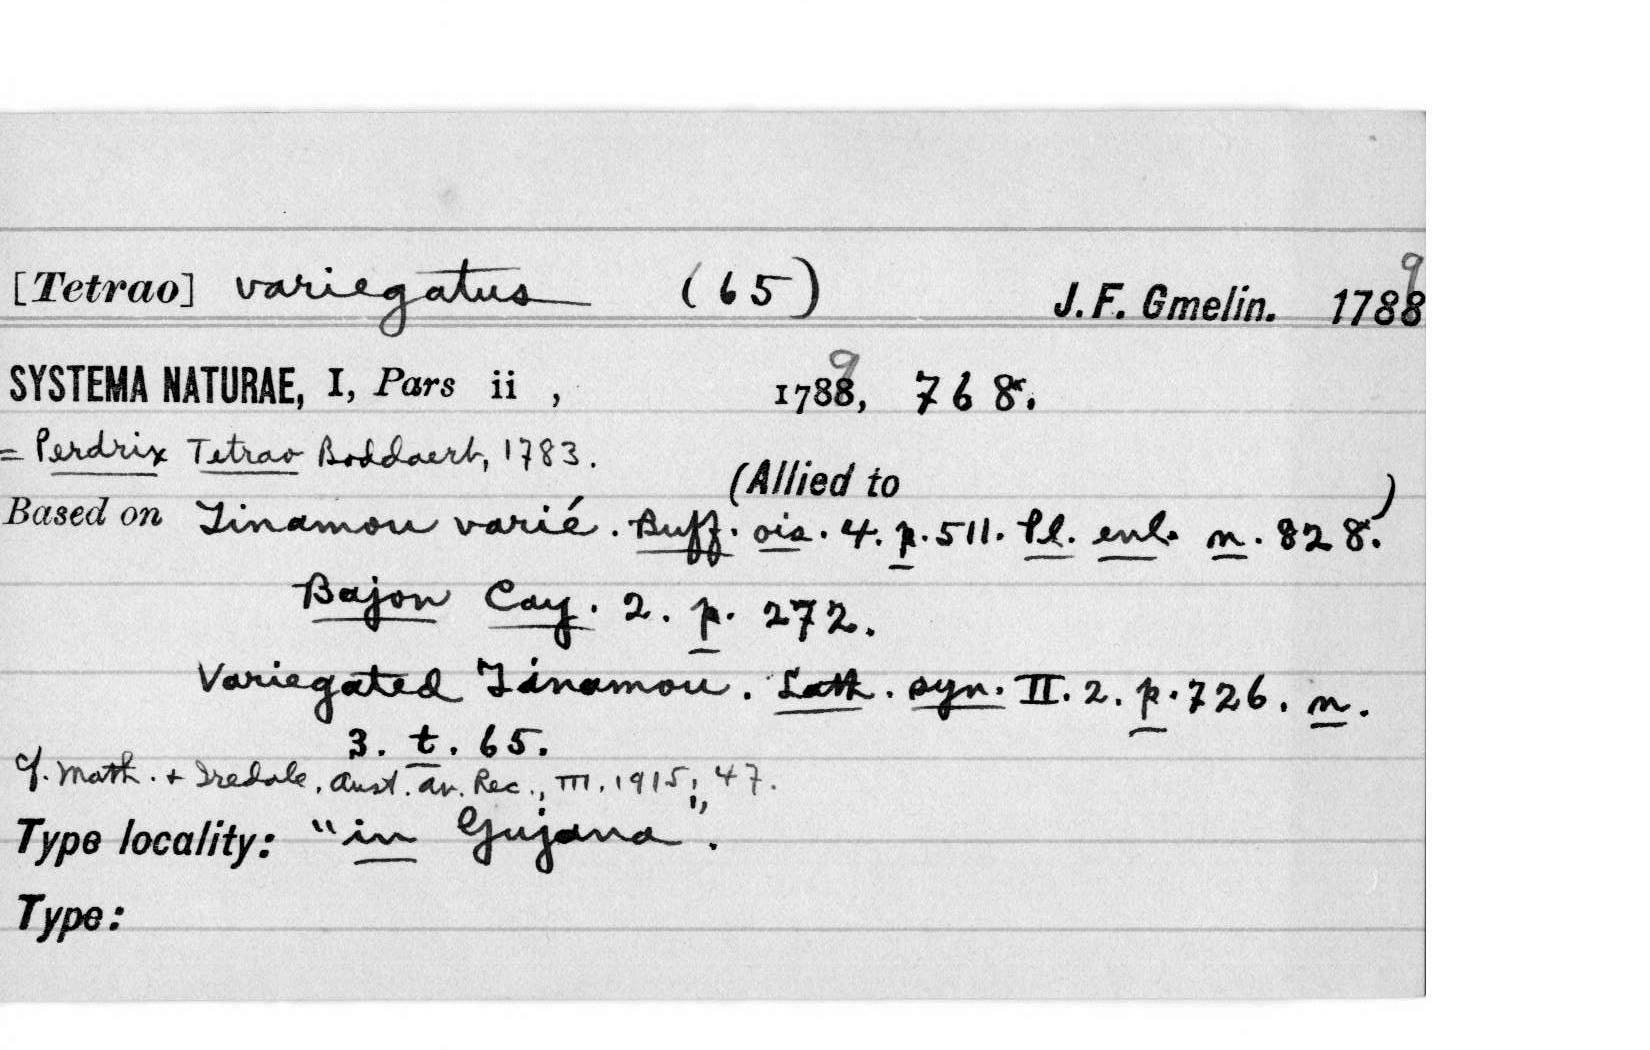 [Tetrao] variegatus (65) J. F. Gmelin. 1788 9
SYSTEMA NATURAE, I, Pars ii , 1788 9, 768.
= Perdrix Tetrao Boddaert, 1783.
(Allied to )
Based on Tinamou varié. Buff. ois. 4. p. 511. Pl. enl. n. 828.
Bajon Cay. 2. p. 272.
Variegated Tinamou. Lath. syn. II. 2. p. 726. n.
3. t. 65.
cf. Math. + Iredale, Aust. Av. Rec., III, 1915, 47.
Type locality: "in Gujana".
Type: